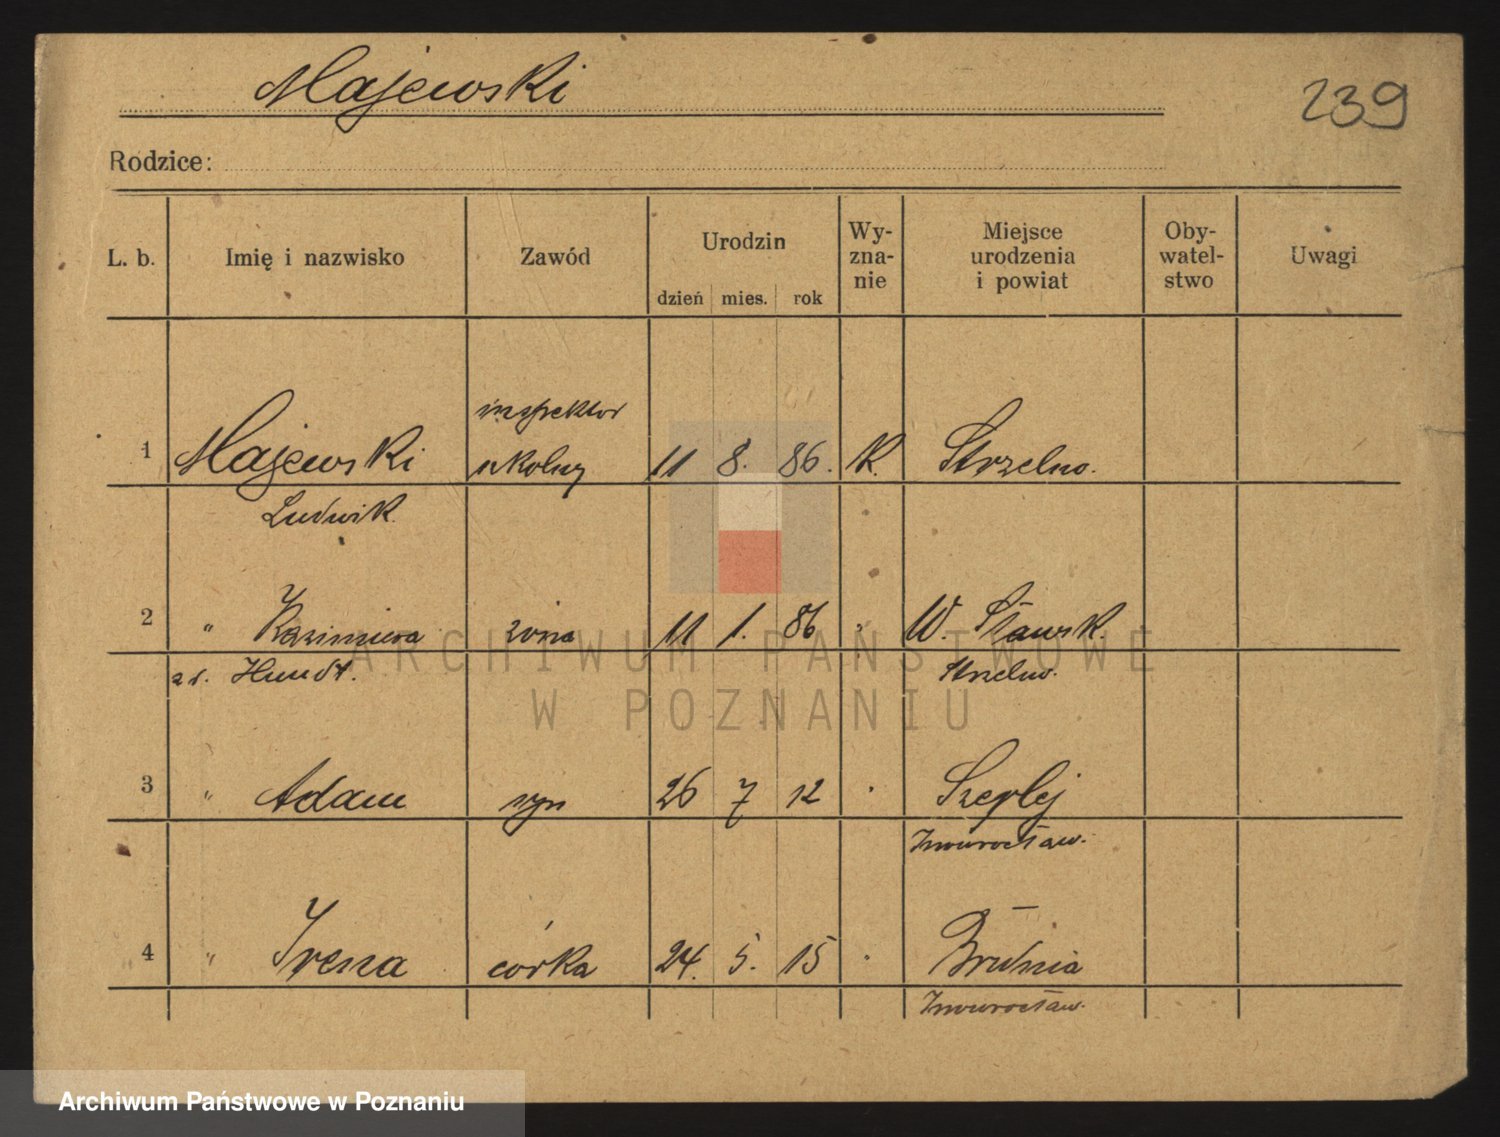 Majewski
239
Rodzice:
L. b. Imię i nazwisko Zawód Urodzin dzień mies. rok Wy-zna-nie Miejsce urodzenia i powiat Oby-watel-stwo Uwagi
inspektor
1 Majewski szkolny 11 8. 86. K. Strzelno.
Ludwik.
2 " Kazimiera żona 11 1. 86 " W. Sławsk.
zd. Hundt. Strzelno.
3 " Adam syn 26 7 12 " Szeplej
Inowrocław.
4 " Irena córka 24. 5. 15 " Brudnia
Inowrocław.
ARCHIWUM PAŃSTWOWE
W POZNANIU
Archiwum Państwowe w Poznaniu